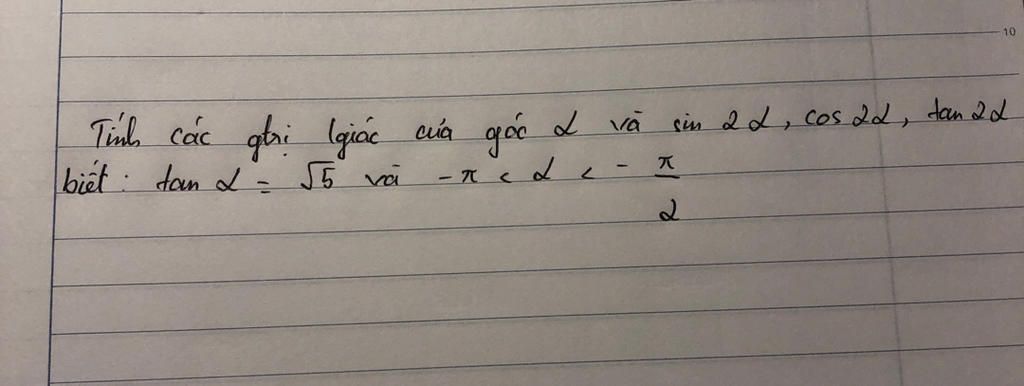 10
Tính các gtrị lgiác của góc α và sin 2α, cos 2α, tan 2α
biết: tan α = √5 và -π < α < - π/2